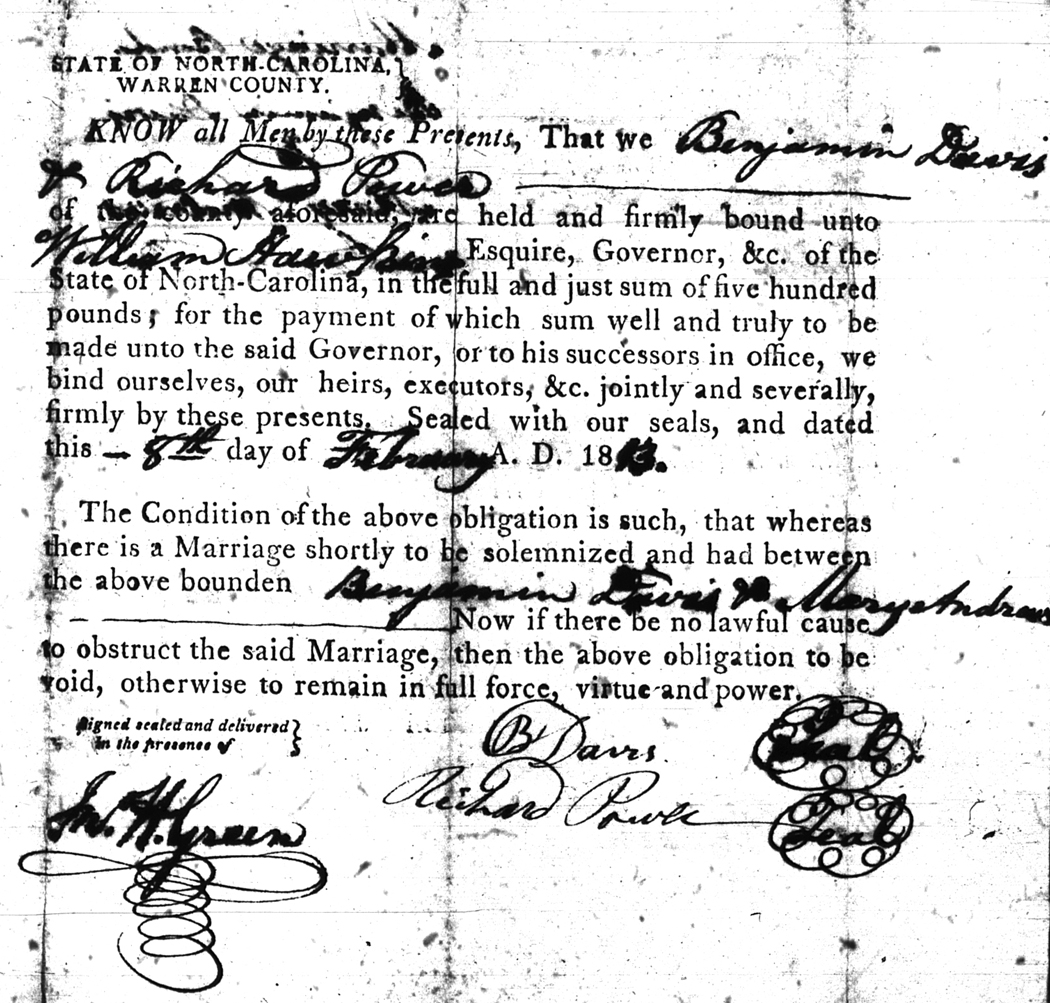 STATE OF NORTH-CAROLINA,
WARREN COUNTY.
KNOW all Men by these Presents, That we Benjamin Davis
& Richard Power
of the county aforesaid, are held and firmly bound unto
William Hawkins Esquire, Governor, &c. of the
State of North-Carolina, in the full and just sum of five hundred
pounds; for the payment of which sum well and truly to be
made unto the said Governor, or to his successors in office, we
bind ourselves, our heirs, executors, &c. jointly and severally,
firmly by these presents. Sealed with our seals, and dated
this 8th day of February A. D. 1813.
The Condition of the above obligation is such, that whereas
there is a Marriage shortly to be solemnized and had between
the above bounden Benjamin Davis & Mary Andrews
Now if there be no lawful cause
to obstruct the said Marriage, then the above obligation to be
void, otherwise to remain in full force, virtue and power.
Signed sealed and delivered
in the presence of
B Davis. Seal
Richard Power Seal
Jno. H. Green